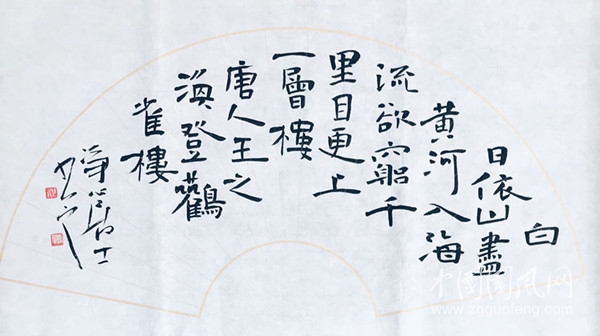 白
日依山盡
黄河入海
流欲窮千
里目更上
一層樓
唐人王之
渙登鸛
雀樓
淨心居士
中国国风网
www.zgguofeng.com